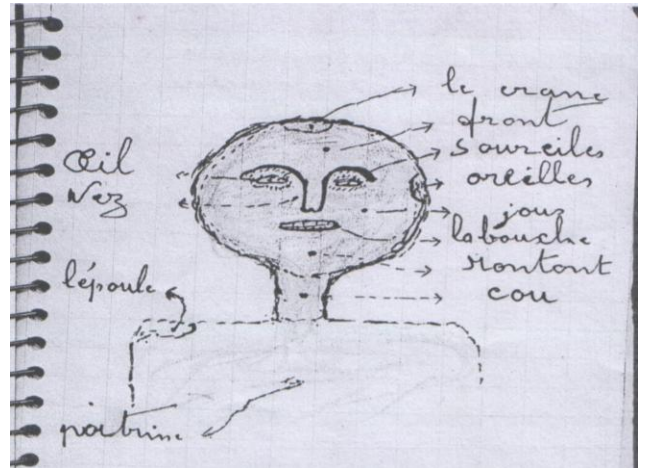 le crane
front
sourciles
oreilles
jous
la bousche
montont
cou
Œil
Nez
l'époule
poitrine